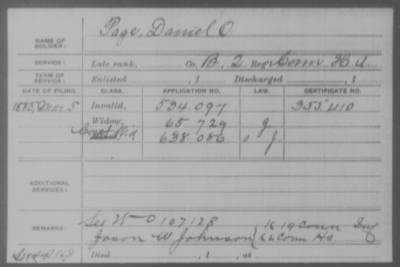 NAME OF SOLDIER: Page, Daniel O.
SERVICE: Late rank, Co. B, 2 Reg't Conn. H A
TERM OF SERVICE: Enlisted , 1 Discharged , 1
DATE OF FILING. CLASS. APPLICATION NO. LAW. CERTIFICATE NO.
1885, Mar. 5 Invalid, 534.097 355410
Widow, 65.729 g
638.086 J.
ADDITIONAL SERVICES:
REMARKS: See W O 107128 19 Conn Inf
Jason W Johnson 2 Conn HA
Died , 1 , at